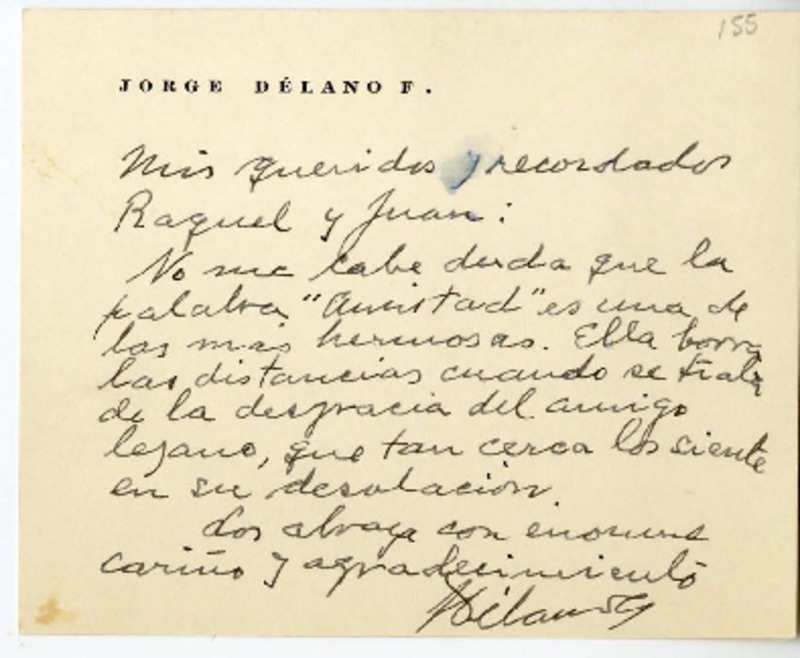 155
JORGE DÉLANO F.
Mis queridos y recordados
Raquel y Juan:
No me cabe duda que la
palabra "Amistad" es una de
las más hermosas. Ella borra
las distancias cuando se trata
de la desgracia del amigo
lejano, que tan cerca los siente
en su desolación.
Los abraza con enorme
cariño y agradecimiento
Délano